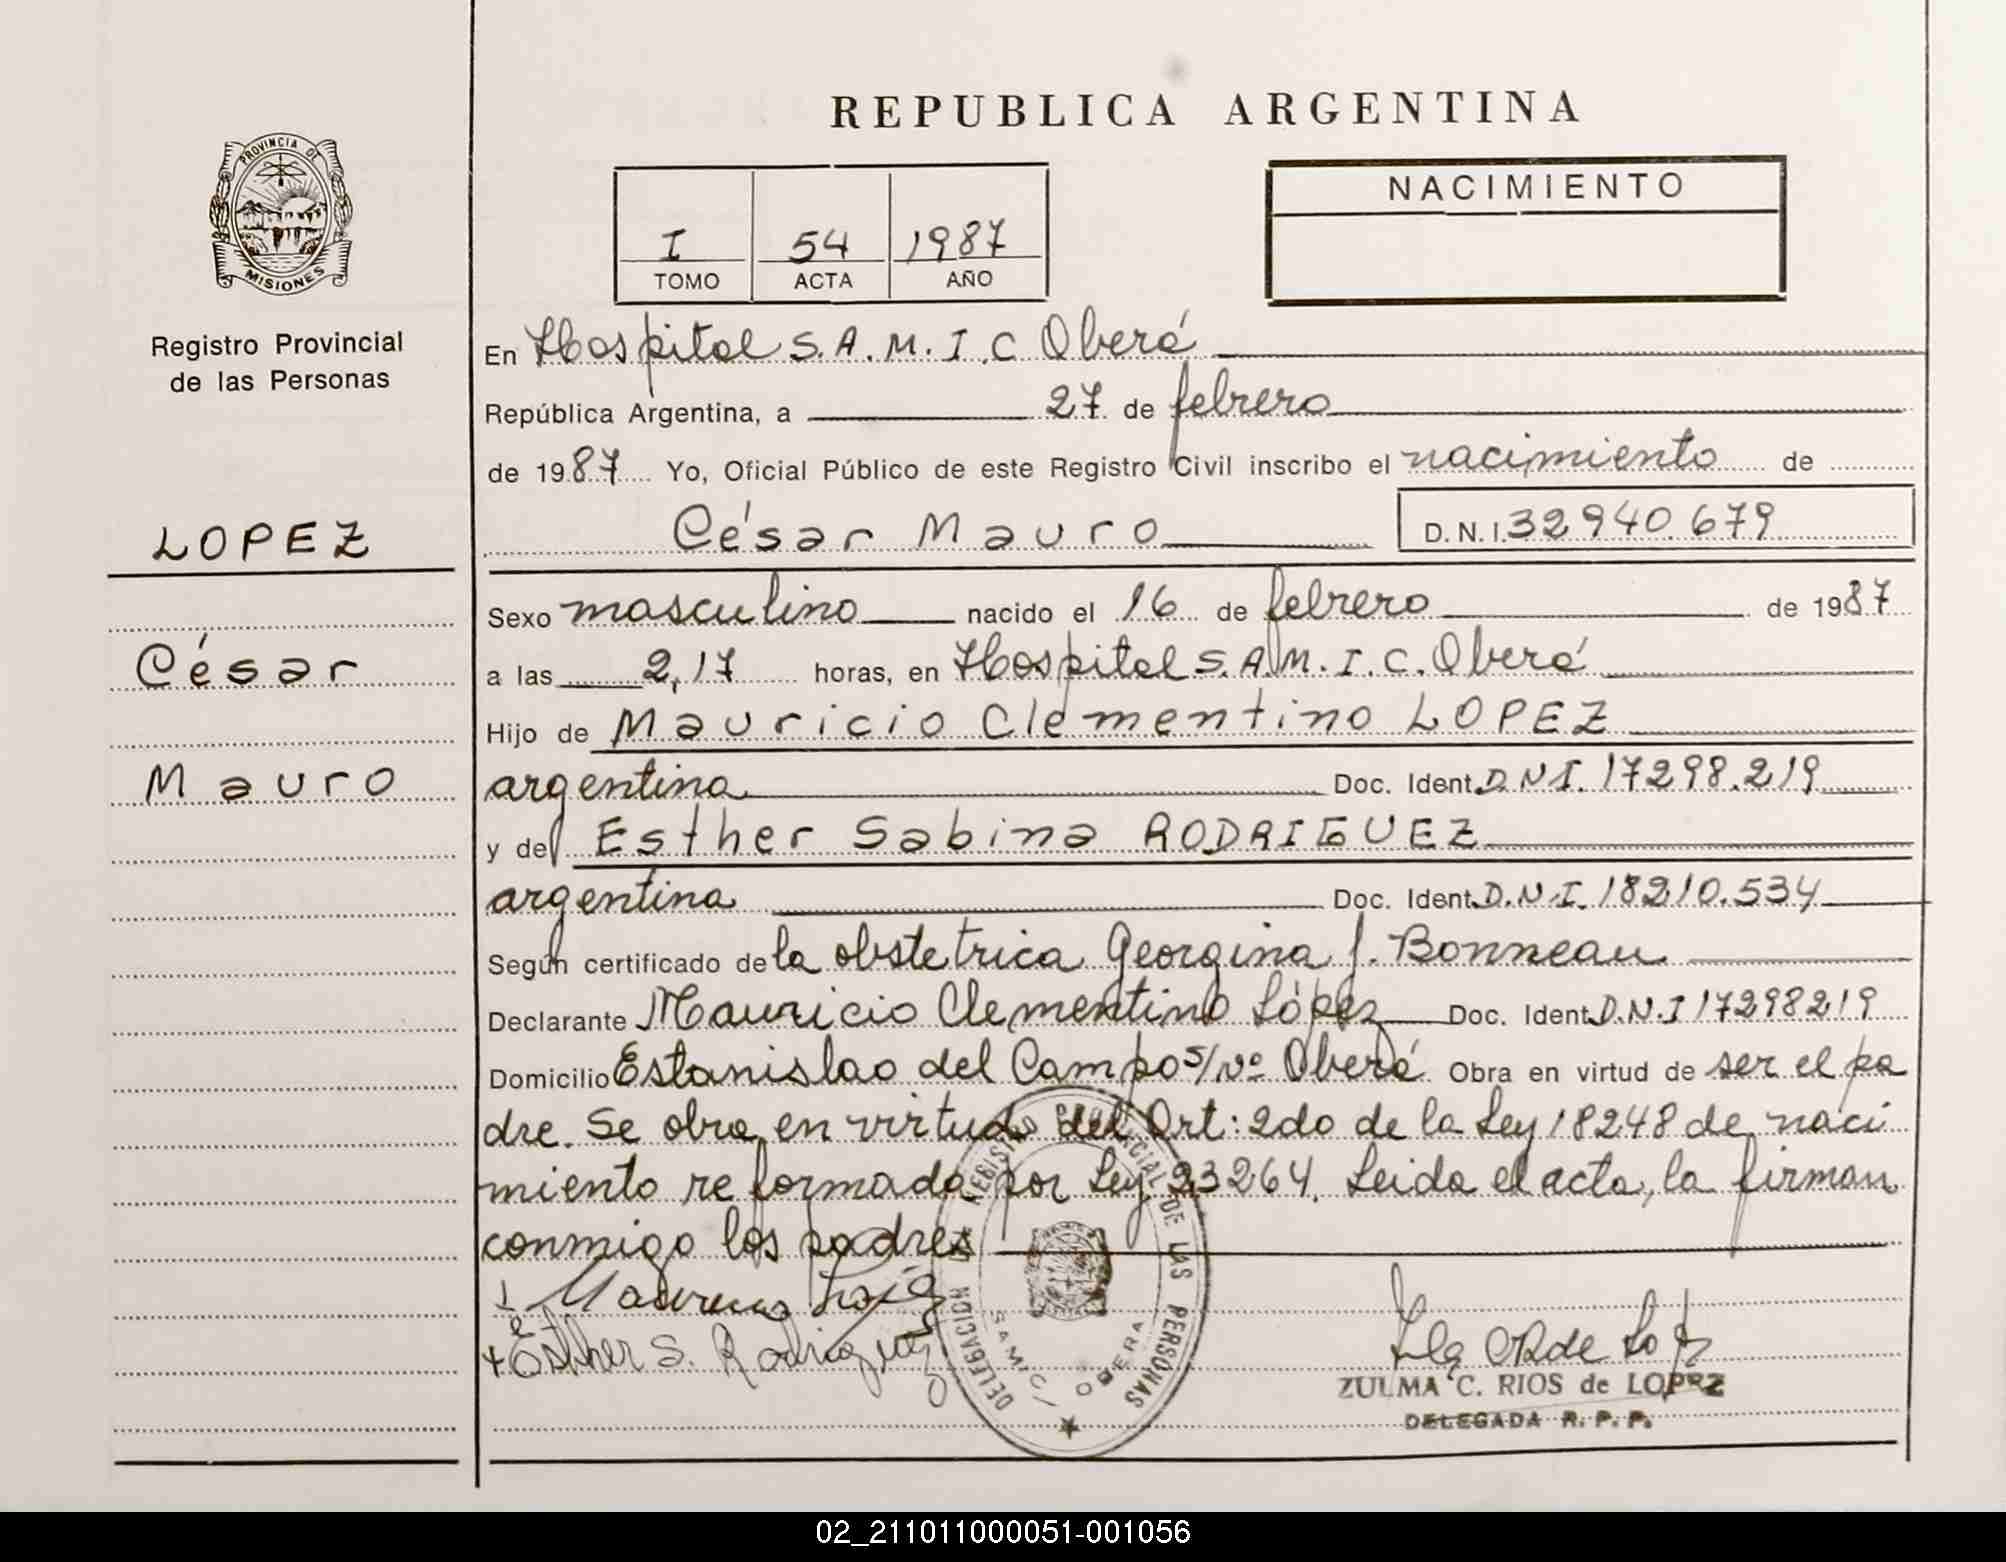 REPUBLICA ARGENTINA
PROVINCIA DE
MISIONES
Registro Provincial
de las Personas
I 54 1987
TOMO ACTA AÑO
NACIMIENTO
En Hospital S.A.M.I.C Oberá
República Argentina, a 27 de febrero
de 1987 Yo, Oficial Público de este Registro Civil inscribo el nacimiento de
César Mauro D.N.I. 32940.679
LOPEZ
César
Mauro
Sexo masculino nacido el 16 de febrero de 1987
a las 2,17 horas, en Hospital S.A.M.I.C. Oberá
Hijo de Mauricio Clementino LOPEZ
argentina Doc. Ident. D.N.I. 17298.219
y de Esther Sabina RODRIGUEZ
argentina Doc. Ident. D.N.I. 18210.534
Según certificado de la obstetrica Georgina J. Bonneau
Declarante Mauricio Clementino López Doc. Ident. D.N.I 17298219
Domicilio Estanislao del Campo s/Nº Oberá Obra en virtud de ser el pa
dre. Se obra en virtud del Art: 2do de la Ley 18248 de naci
miento reformada por Ley 23264. Leida el acta, la firman
conmigo los padres
Esther S. Rodriguez
DELEGACION REGISTRO PROVINCIAL DE LAS PERSONAS
SAMIC / OBERA
ZULMA C. RIOS de LOPEZ
DELEGADA R. P. P.
02_211011000051-001056